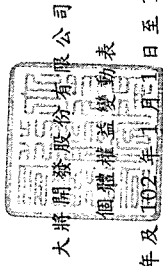 大將開發股份有限公司
個體權益變動表
年及102年1月1日至